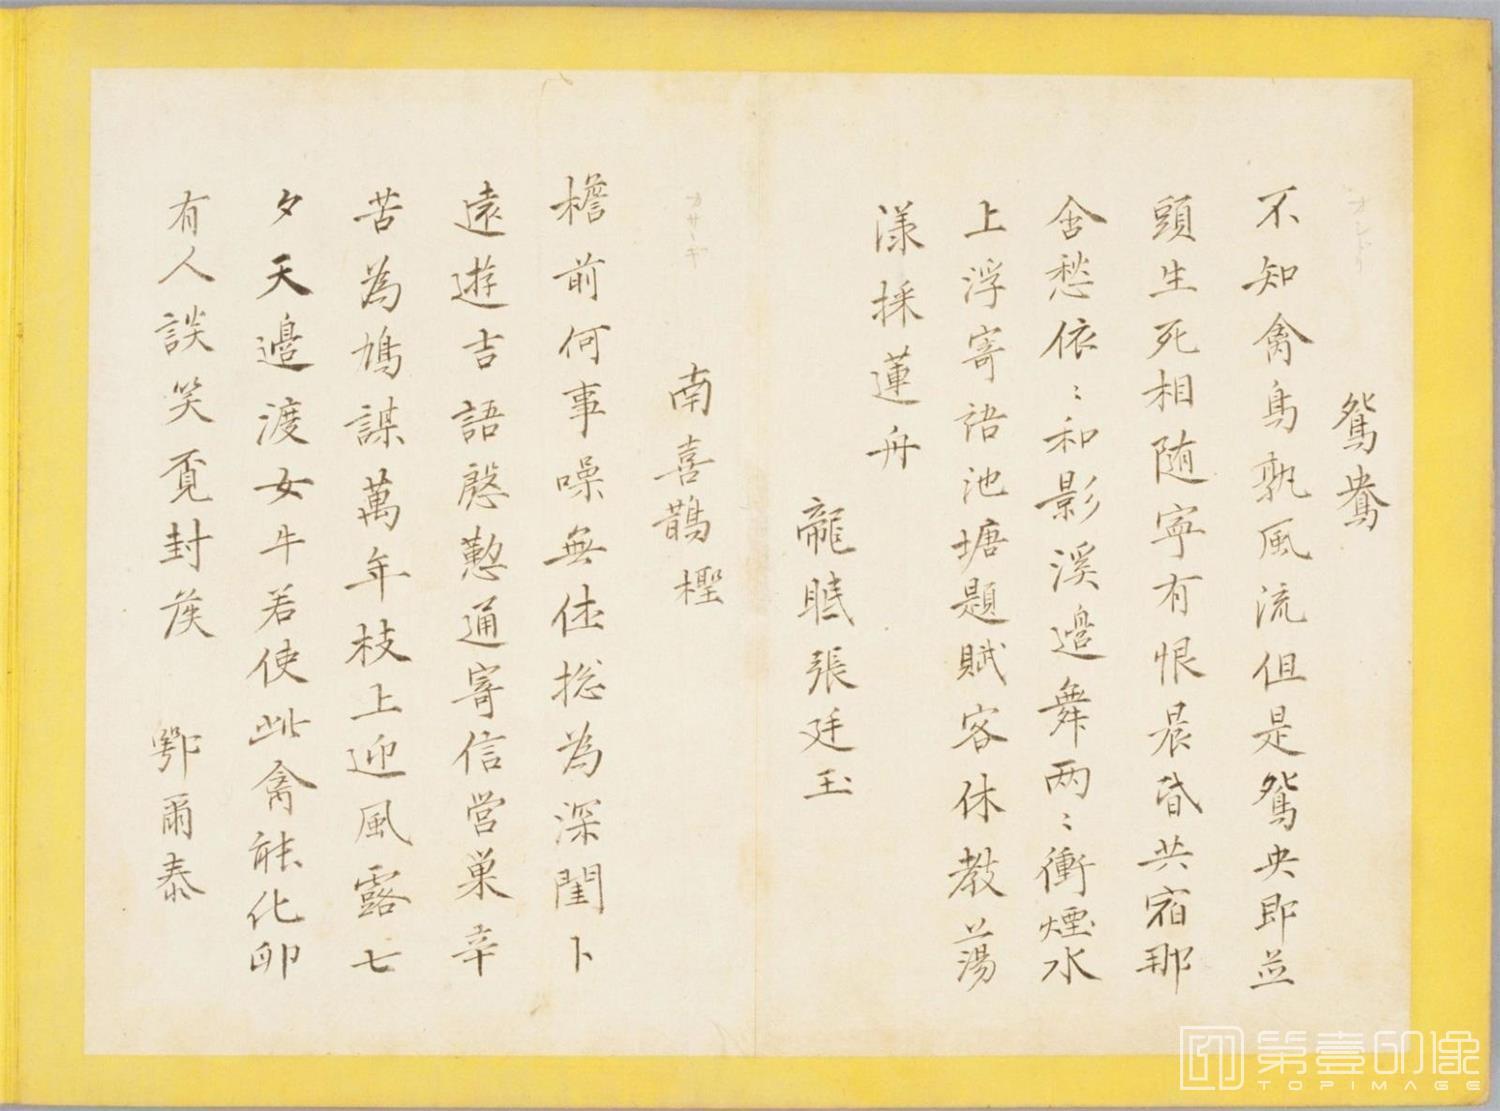 オシドリ
鴛鴦
不知禽鳥孰風流但是鴛央即並
頭生死相随寧有恨晨昏共宿那
舍愁依〻和影溪邉舞两〻衝煙水
上浮寄語池塘題賦客休教蕩
漾採蓮舟
龍眠張廷玉
カサヽギ
南喜鵲檉
檐前何事噪無住捴為深閨卜
遠遊吉語慇懃通寄信營巢辛
苦為鳩謀萬年枝上迎風露七
夕天邉渡女牛若使此禽能化印
有人談笑覔封侯
鄂爾泰
第壹印像
TOPIMAGE